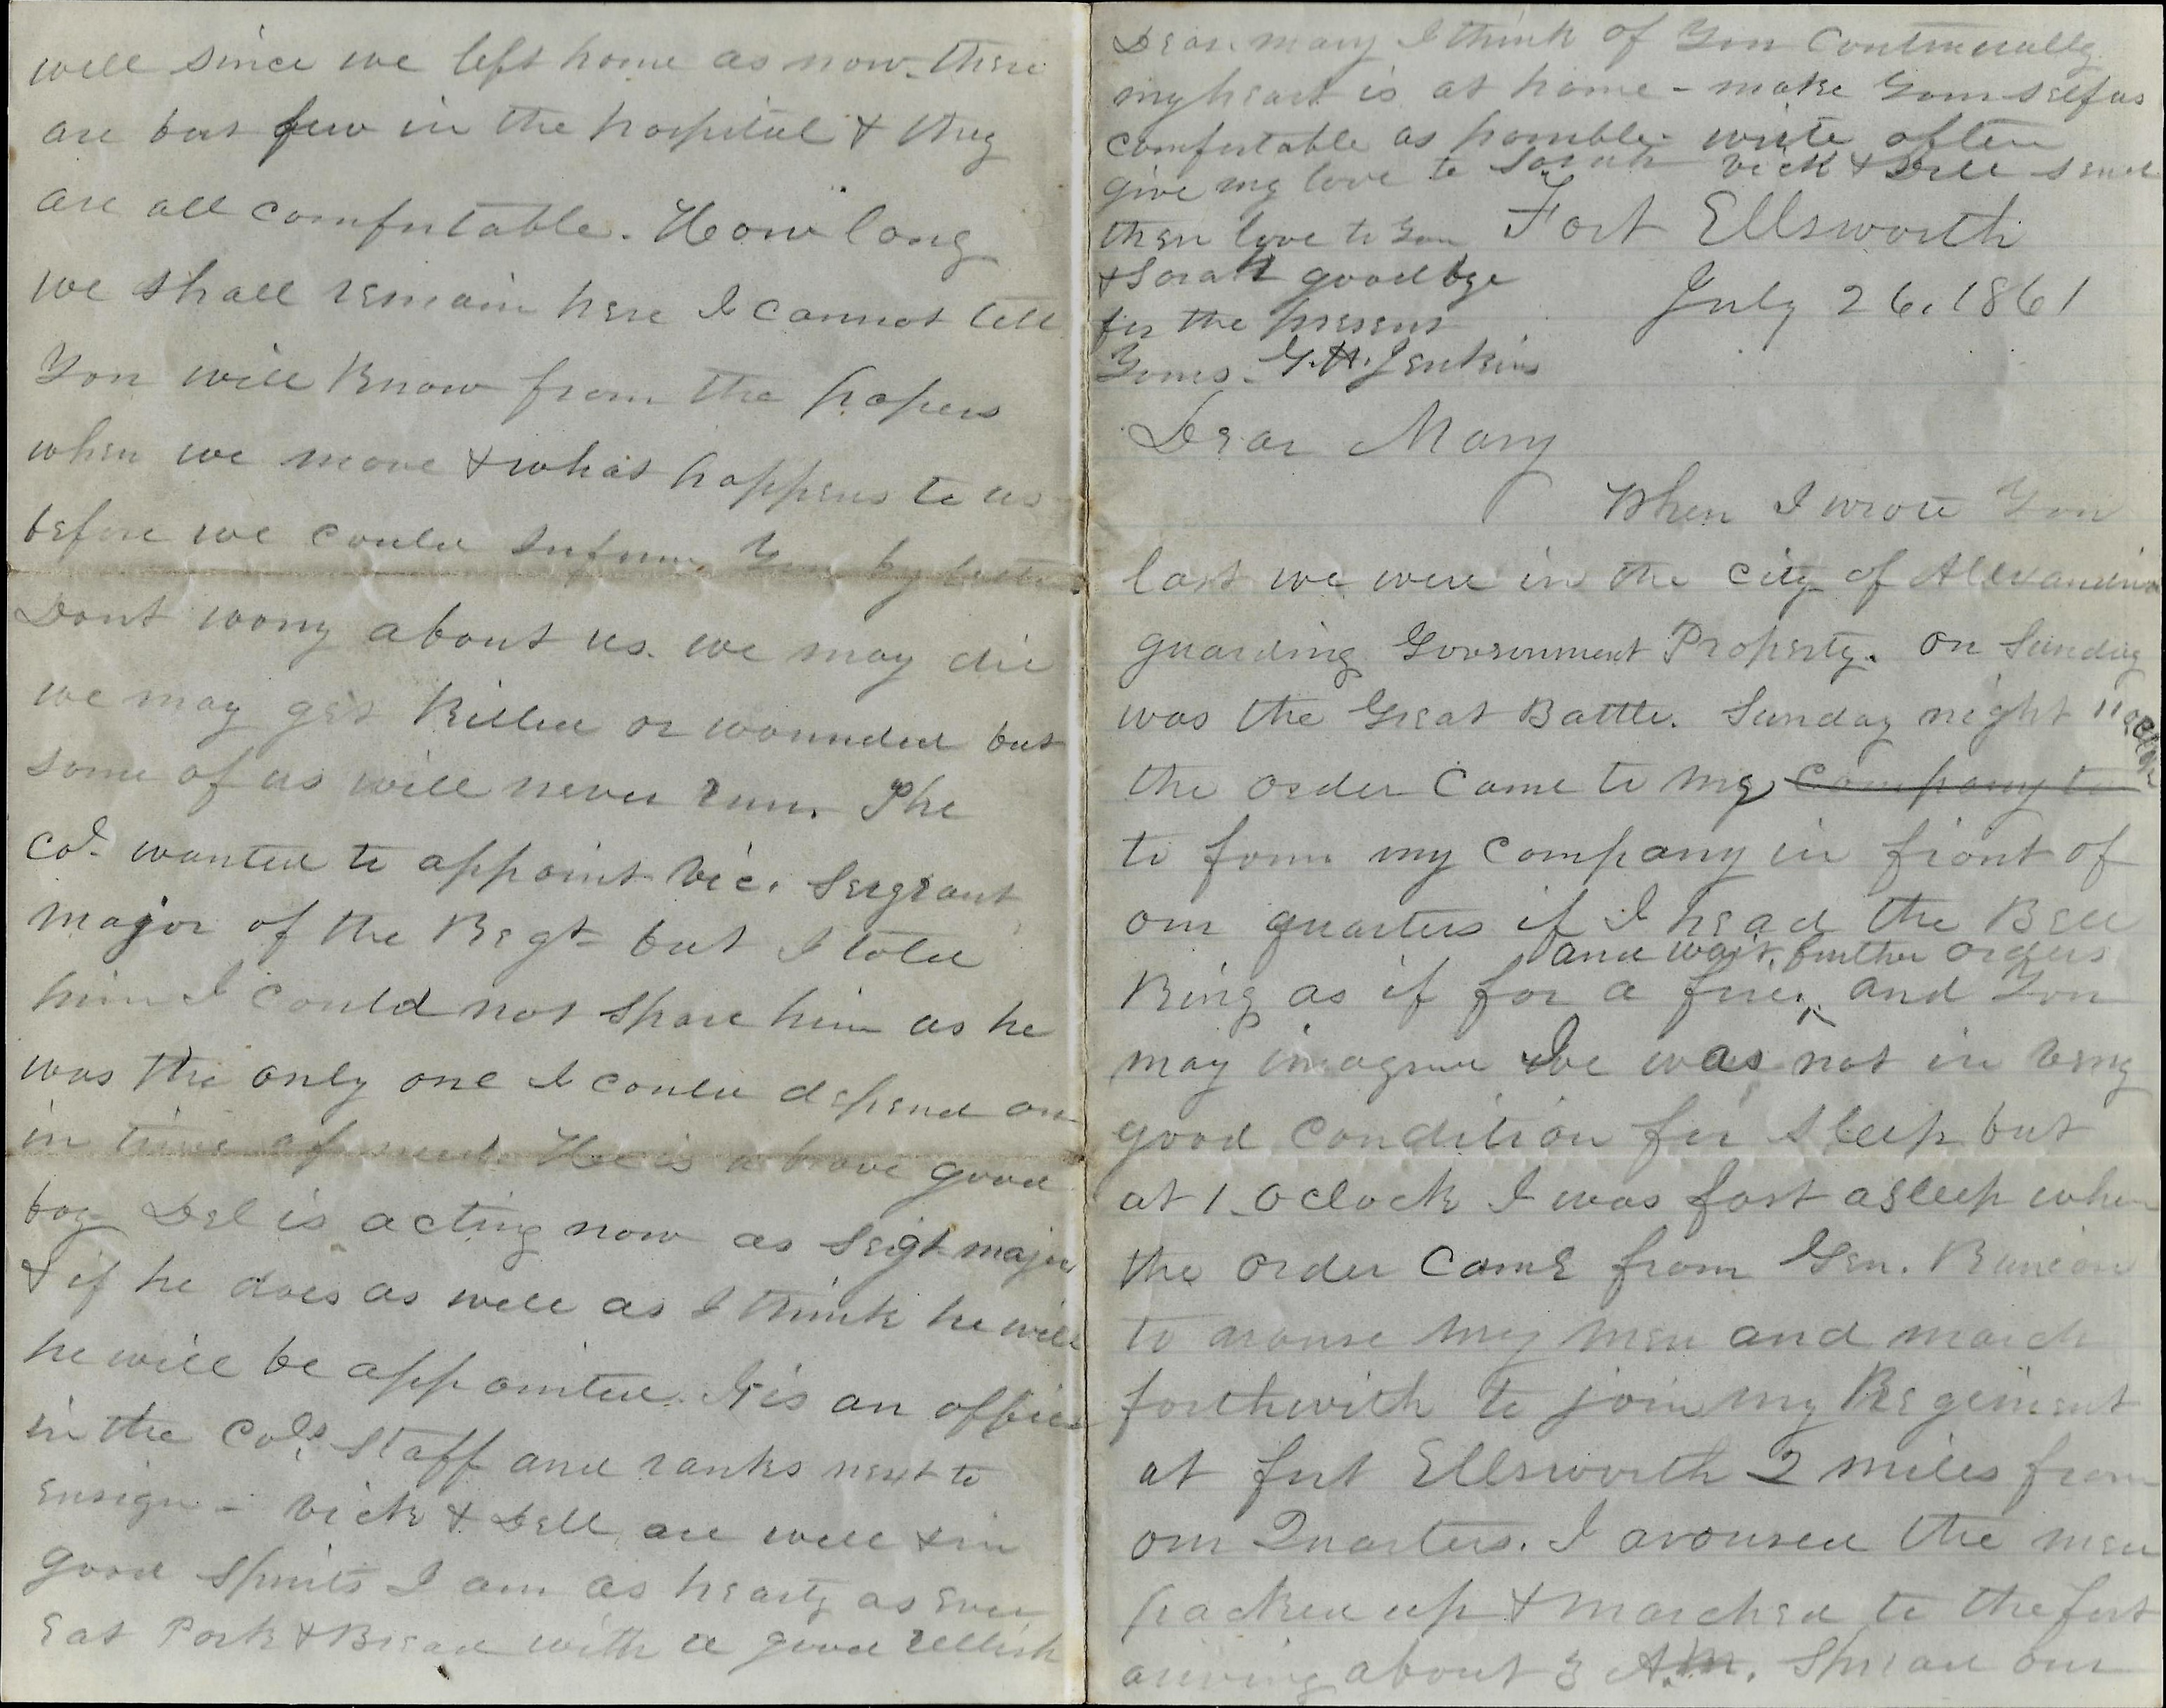 well since we left home as now. there
are but few in the hospital & they
are all comfortable. How long
we shall remain here I cannot tell
You will Know from the papers
when we move & what happens to us
before we could inform You by letter
Dont worry about us. we may die
we may get Killed or wounded but
some of us will never run. The
Col. wanted to appoint Vic. Sergeant
major of the Regt but I told
him I could not Spare him as he
was the only one I could depend on
in time of need. He is a brave good
boy Del is acting now as Sergt major
& if he does as well as I think he will
he will be appointed. It is an office
in the Cols. Staff and ranks next to
Ensign - Vick & Dell are well & in
good Spirits I am as hearty as Ever
Eat Pork & Bread with a good rellish
Dear mary I think of You Continually
my heart is at home - make Yourself as
comfortable as possible - write often
give my love to Sarah Vick & Dell send
their love to You
& Sarah goodbye
for the present
Yours. G. H. Jenkins
Fort Ellsworth
July 26. 1861
Dear Mary
When I wrote You
last we were in the city of Alexandria
guarding Government Property. on Sunday
was the Great Battle. Sunday night 11 oclock
the order Came to my company to
to form my Company in front of
our quarters if I head the Bell
and wait further orders
Ring as if for a fire, and You
may imagine We was not in very
good Condition for Sleep but
at 1. Oclock I was fast asleep when
the order Came from Gen. Runion
to arouse my men and march
forthwith to join my Regement
at fort Ellsworth 2 miles from
our Quarters. I aroused the men
packed up & marched to the fort
arriving about 3 A.M. Spread our